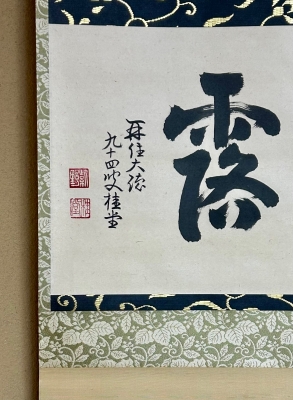 露
再住大徳
九十四叟桂堂